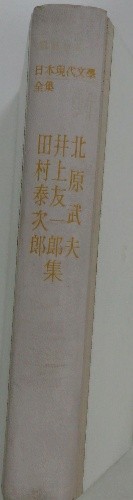 日本現代文學
全集
北原武夫
井上友一郎
田村泰次郎
集